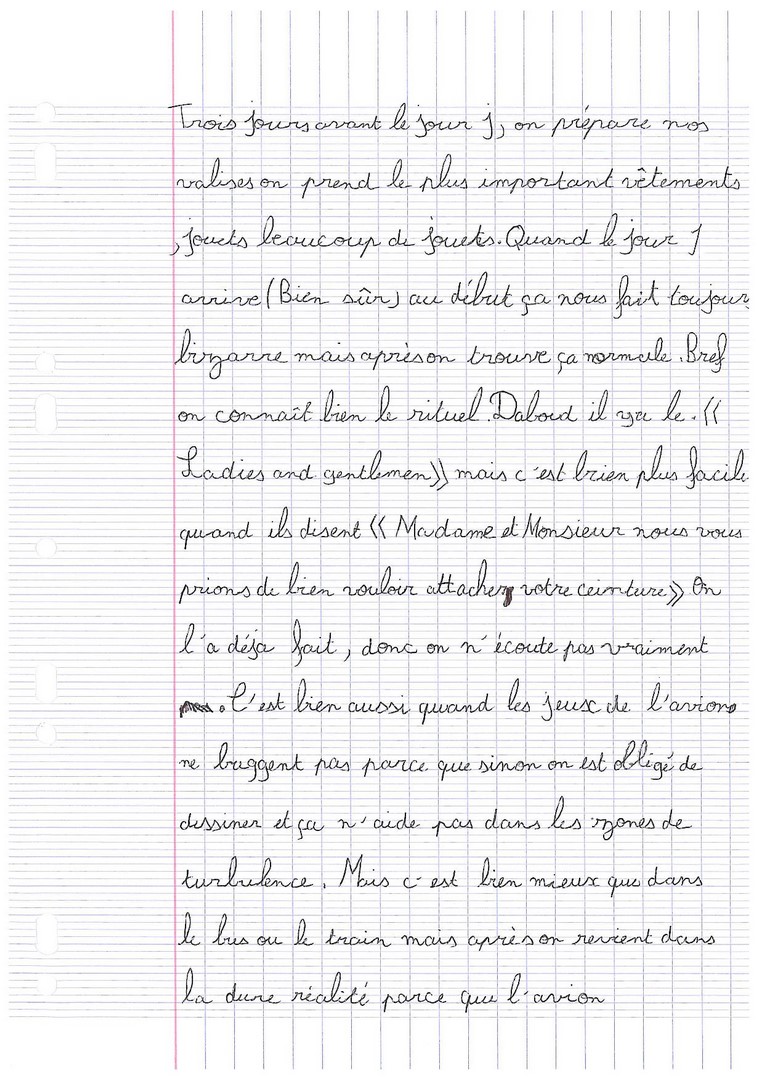 Trois jours avant le jour j, on prépare nos
valises on prend le plus important vêtements
, jouets beaucoup de jouets. Quand le jour J
arrive (Bien sûr) au début ça nous fait toujours
bizarre mais après on trouve ça normale. Bref
on connaît bien le rituel. Dabord il ya le. «
Ladies and gentlemen» mais c'est bien plus facile
quand ils disent « Madame et Monsieur nous vous
prions de bien vouloir attacher votre ceinture» On
l'a déja fait, donc on n'écoute pas vraiment
. C'est bien aussi quand les jeux de l'avion
ne buggent pas parce que sinon on est obligé de
dessiner et ça n'aide pas dans les zones de
turbulence. Mais c'est bien mieux que dans
le bus ou le train mais après on revient dans
la dure réalité parce que l'avion